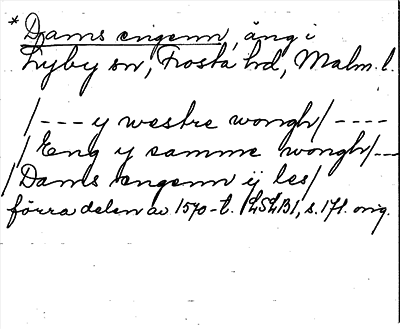 * Dams engenn, äng i
Lyby sn, Frosta hd, Malm. l.
/--- y westre wongh/ ----
/Eng y samme wongh/---
/Dams engenn ij les/
förra delen av 1570-t. LSLB1, s. 171. orig.